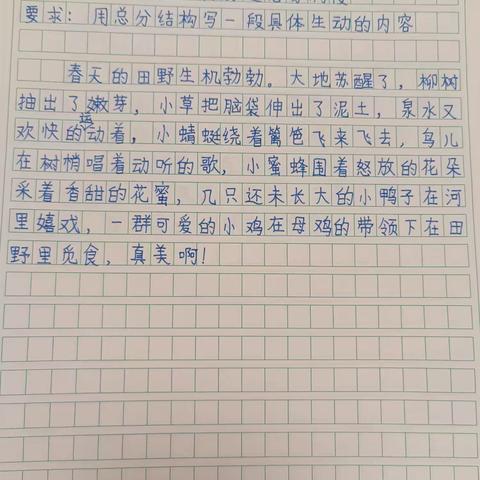 要求：用总分结构写一段具体生动的内容
春天的田野生机勃勃。大地苏醒了，柳树
抽出了嫩芽，小草把脑袋伸出了泥土，泉水又
欢快的运动着，小蜻蜓绕着篱笆飞来飞去，鸟儿
在树梢唱着动听的歌，小蜜蜂围着怒放的花朵
采着香甜的花蜜，几只还未长大的小鸭子在河
里嬉戏，一群可爱的小鸡在母鸡的带领下在田
野里觅食，真美啊！